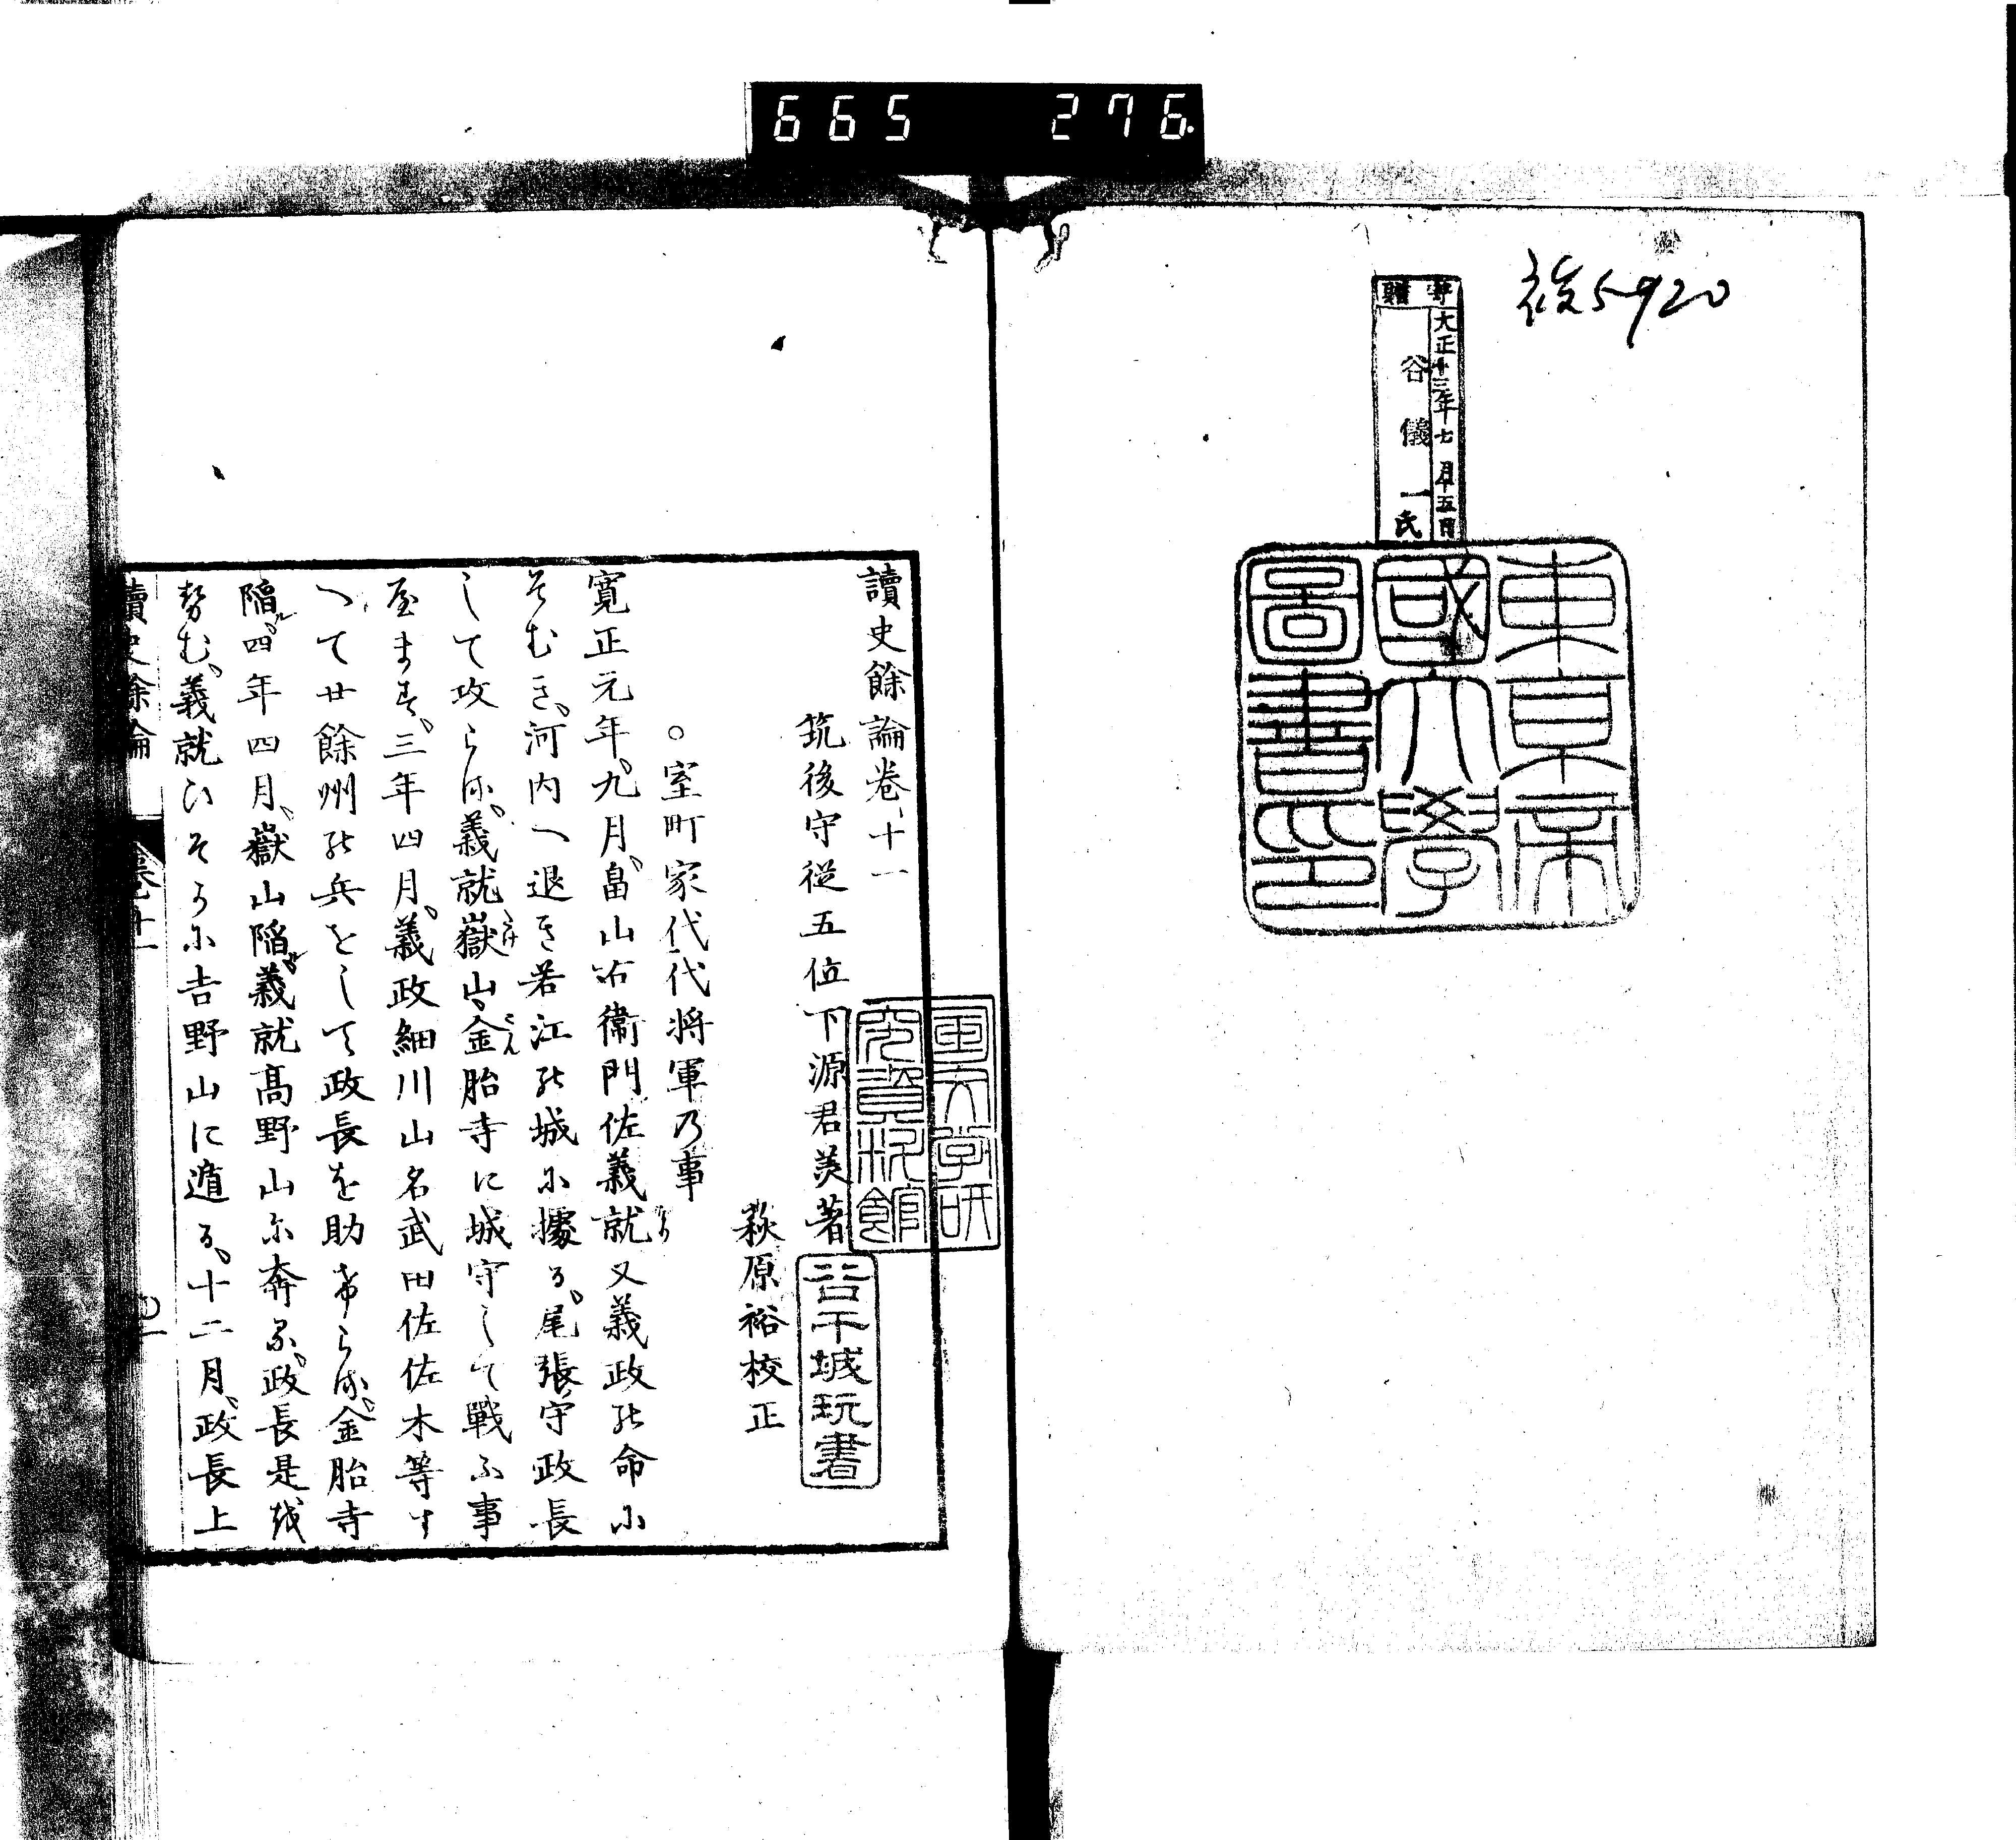 665 276
後5920
寄贈
大正十三年七月十五日
谷儀一氏
東京帝
國大學
圖書印
讀史餘論卷十一
筑後守從五位下源君美著
萩原裕校正
谷干城玩書
○室町家代代將軍乃事
寛正元年九月、畠山右衞門佐義就又義政の命に
そむき、河内へ退き若江の城に據る、尾張守政長
して攻らる、義就嶽山金胎寺に城守して戰ふ事
屋まず、三年四月、義政細川山名武田佐佐木等す
へて廿餘州の兵をして政長を助けらる、金胎寺
陷、四年四月、嶽山陷、義就高野山に奔る、政長是を
勢む、義就ひそかに吉野山に遁る、十二月、政長上
讀史餘論